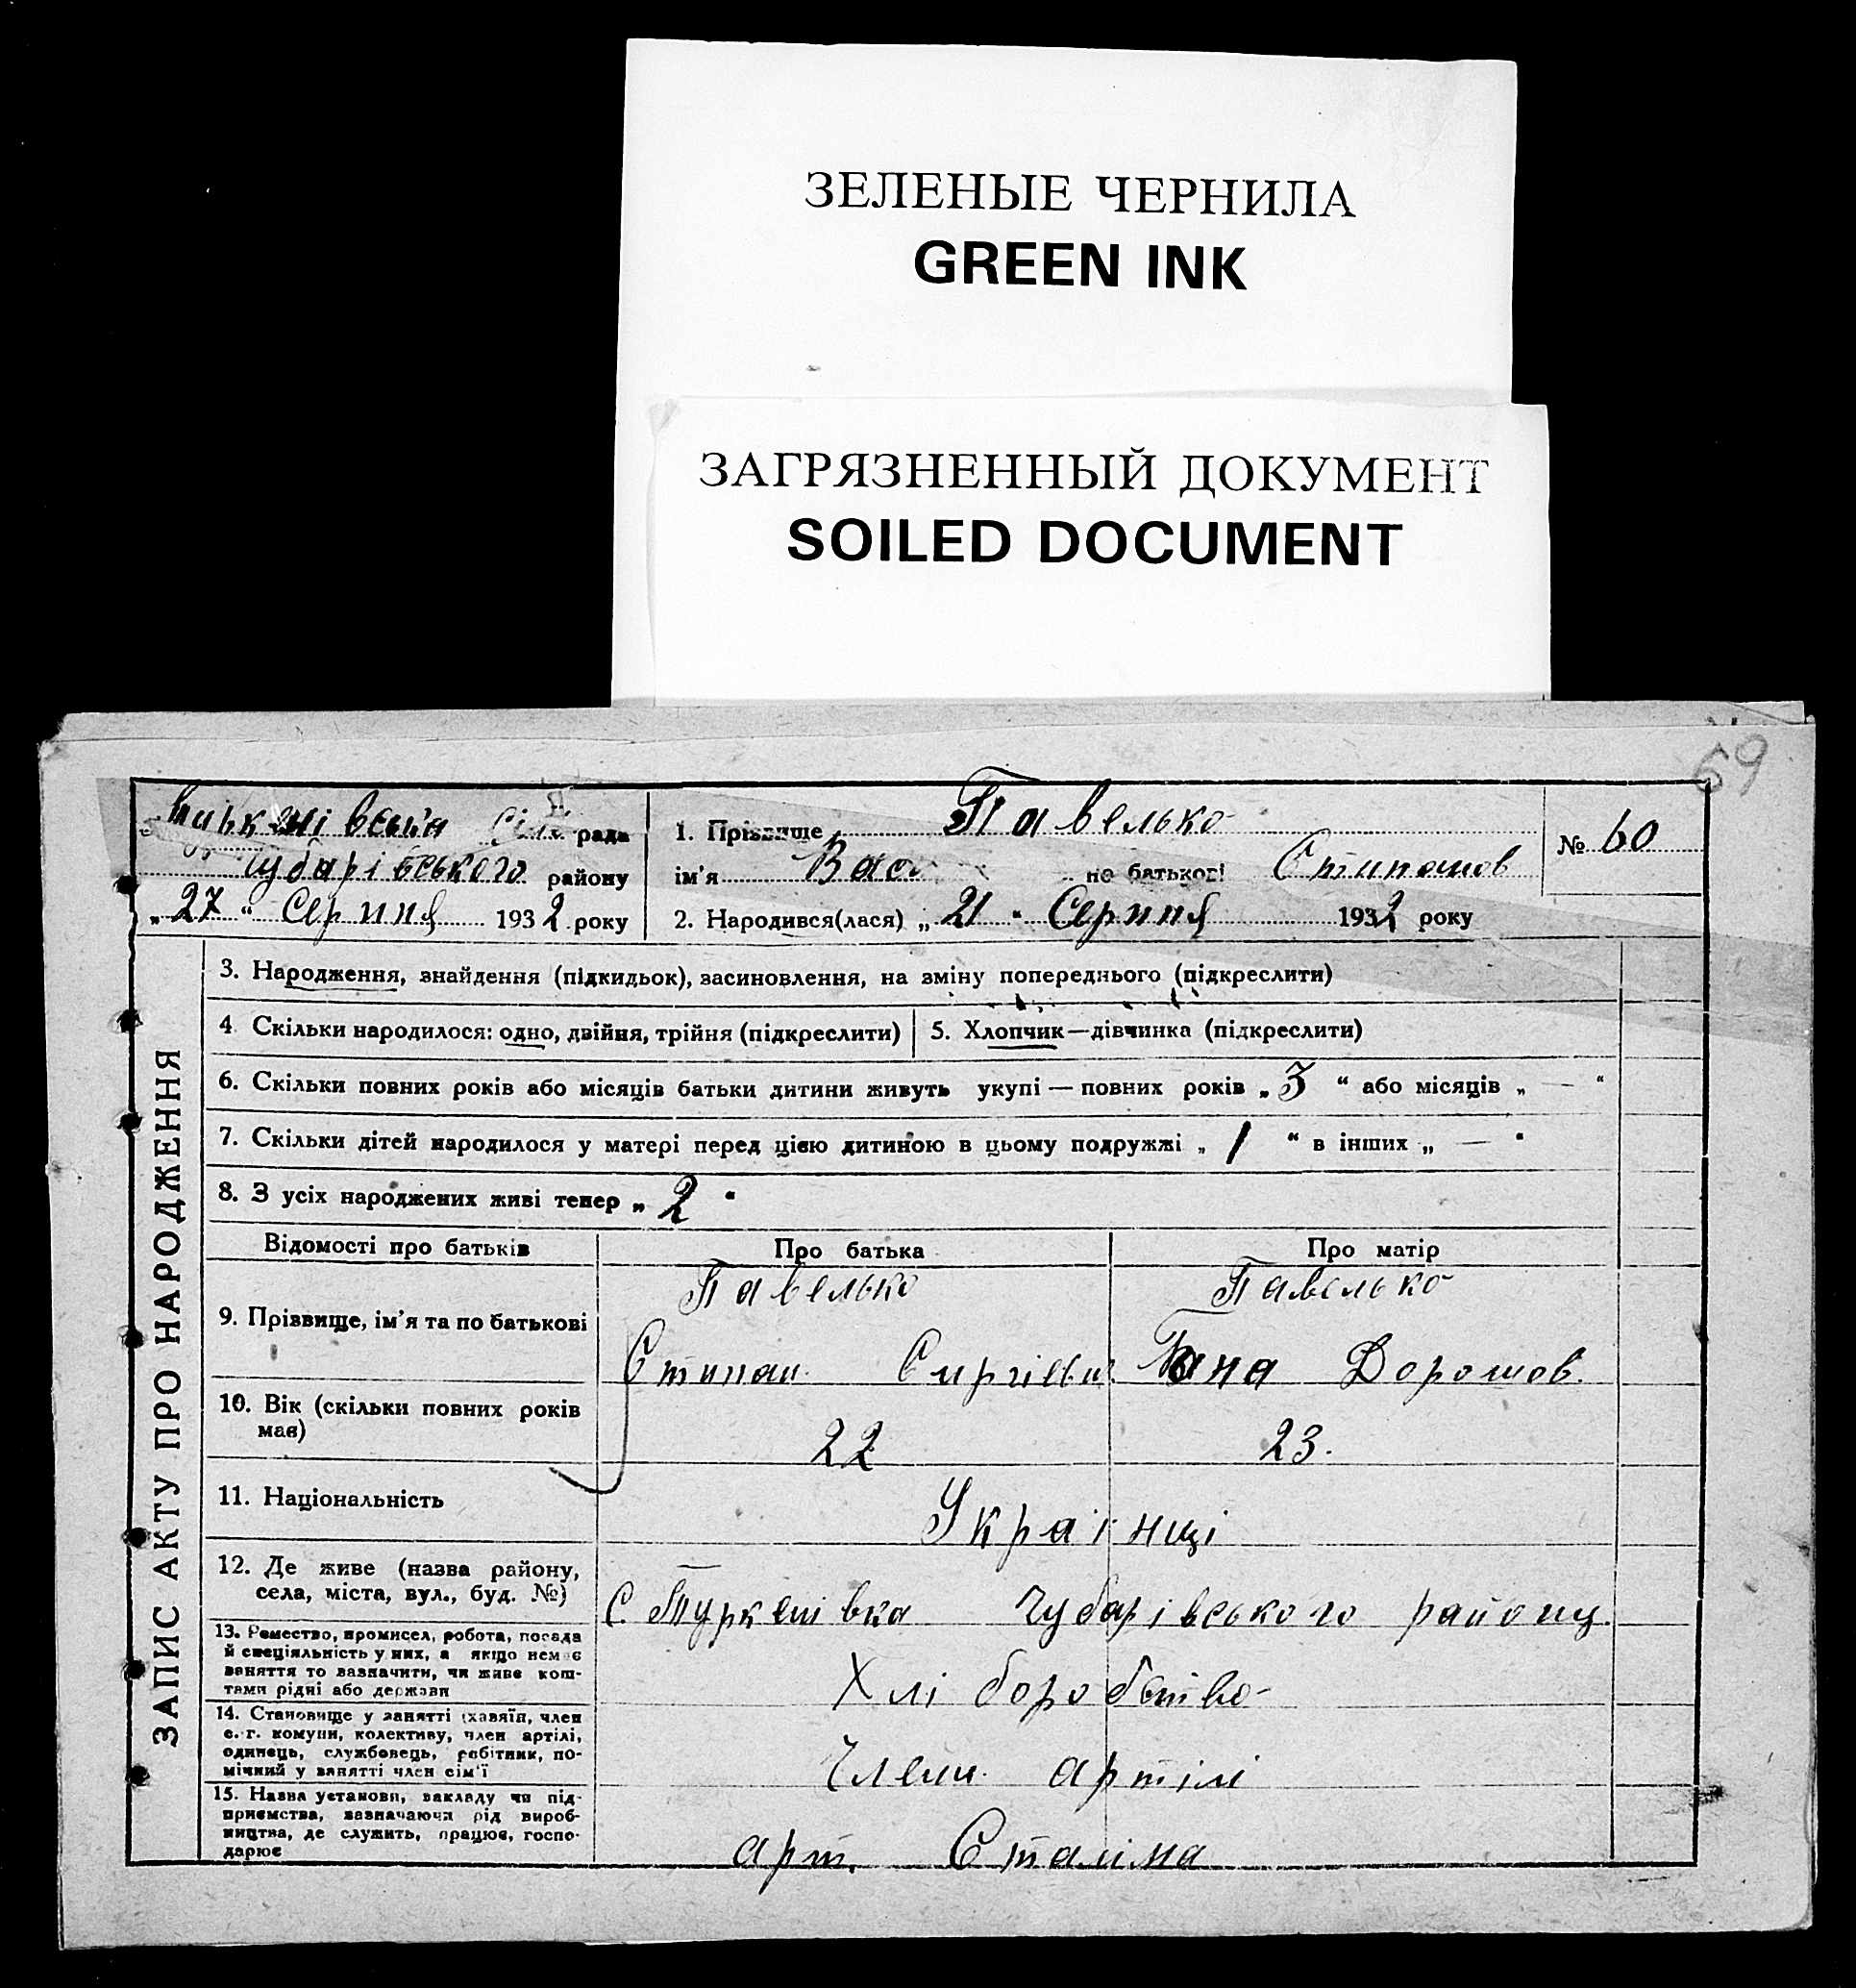 ЗЕЛЕНЫЕ ЧЕРНИЛА
GREEN INK
ЗАГРЯЗНЕННЫЙ ДОКУМЕНТ
SOILED DOCUMENT
69
сіль рада
Чубарівського району
„27“ Серпня 1932 року
1. Прізвище Павелько
ім'я Вас по батькові Стипанов
№ 60
2. Народився(лася) „21“ Серпня 1932 року
ЗАПИС АКТУ ПРО НАРОДЖЕННЯ
3. Народження, знайдення (підкидьок), засиновлення, на зміну попереднього (підкреслити)
4. Скільки народилося: одно, двійня, трійня (підкреслити)
5. Хлопчик—дівчинка (підкреслити)
6. Скільки повних років або місяців батьки дитини живуть укупі — повних років „3“ або місяців „—“
7. Скільки дітей народилося у матері перед цією дитиною в цьому подружжі „1“ в інших „—“
8. З усіх народжених живі тепер „2“
Відомості про батьків
Про батька
Про матір
9. Прізвище, ім'я та по батькові
Павелько
Стипан
Павелько
Дорошов.
10. Вік (скільки повних років
має)
22
23.
11. Національність
Українці
12. Де живе (назва району,
села, міста, вул., буд. №)
С. Туркенівка Чубарівського району.
13. Ремество, промисел, робота, посада
й спеціяльність у них, а якщо немає
заняття то зазначити, чи живе кош-
тами рідні або держави
Хліборобство
14. Становище у занятті (хазяїн, член
с.-г. комуни, колективу, член артілі,
одинець, службовець, робітник, по-
мічний у занятті член сім'ї
Члени артілі
15. Назва установи, закладу чи під-
приємства, зазначаючи рід вироб-
ництва, де служить, працює, госпо-
дарює
арт. Сталіна